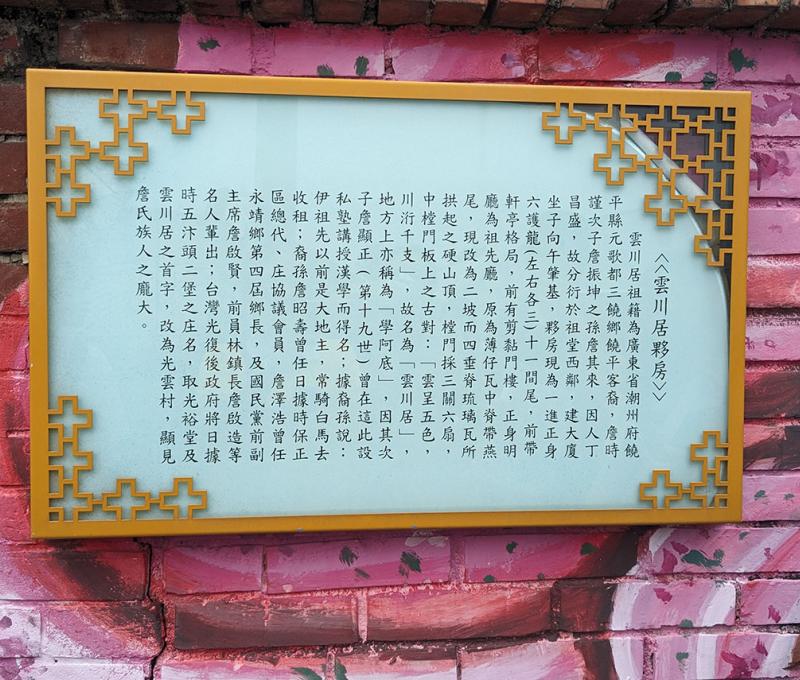 <<雲川居夥房>>
雲川居祖籍為廣東省潮州府饒
平縣元歌都三饒鄉饒平客裔，詹時
謹次子詹振坤之孫詹其來，因人丁
昌盛，故分衍於祖堂西鄰，建大廈
坐子向午肇基，夥房現為一進正身
六護龍(左右各三)十一間尾，前帶
軒亭格局，前有剪黏門樓，正身明
廳為祖先廳，原為薄仔瓦中脊帶燕
尾，現改為二坡而四垂脊琉璃瓦所
拱起之硬山頂，樘門採三關六扇，
中樘門板上之古對：「雲呈五色，
川洐千支」，故名為「雲川居」，
地方上亦稱為「學阿底」，因其次
子詹顯正(第十九世)曾在這此設
私塾講授漢學而得名；據裔孫說：
伊祖先以前是大地主，常騎白馬去
收租；裔孫詹昭壽曾任日據時保正
區總代、庄協議會員，詹澤浩曾任
永靖鄉第四屆鄉長，及國民黨前副
主席詹啟賢，前員林鎮長詹啟造等
名人輩出；台灣光復後政府將日據
時五汴頭二堡之庄名，取光裕堂及
雲川居之首字，改為光雲村，顯見
詹氏族人之龐大。